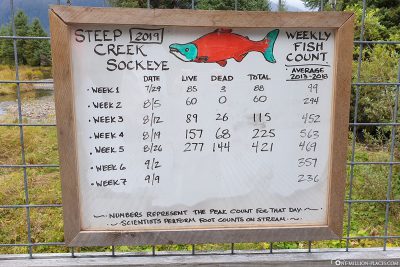 STEEP 2019
CREEK
SOCKEYE
WEEKLY
FISH
COUNT
AVERAGE
2013-2018
DATE LIVE DEAD TOTAL
WEEK 1 7/29 85 3 88 99
WEEK 2 8/5 60 0 60 294
WEEK 3 8/12 89 26 115 452
WEEK 4 8/19 157 68 225 563
WEEK 5 8/26 277 144 421 469
WEEK 6 9/2 357
WEEK 7 9/9 236
NUMBERS REPRESENT THE PEAK COUNT FOR THAT DAY
SCIENTISTS PERFORM FOOT COUNTS ON STREAM.
ONE-MILLION-PLACES.COM